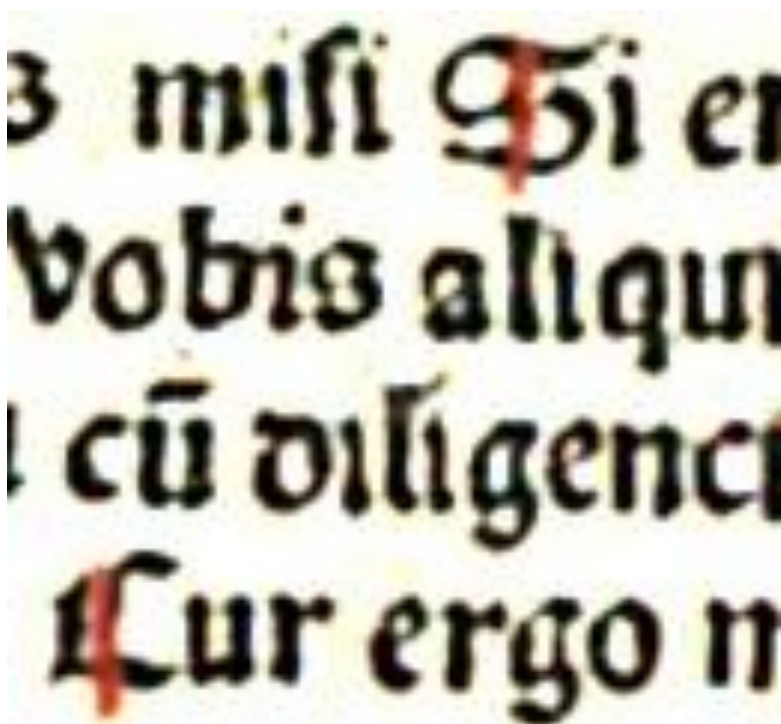 s misi Si e
vobis aliqui
cū diligenci
Cur ergo